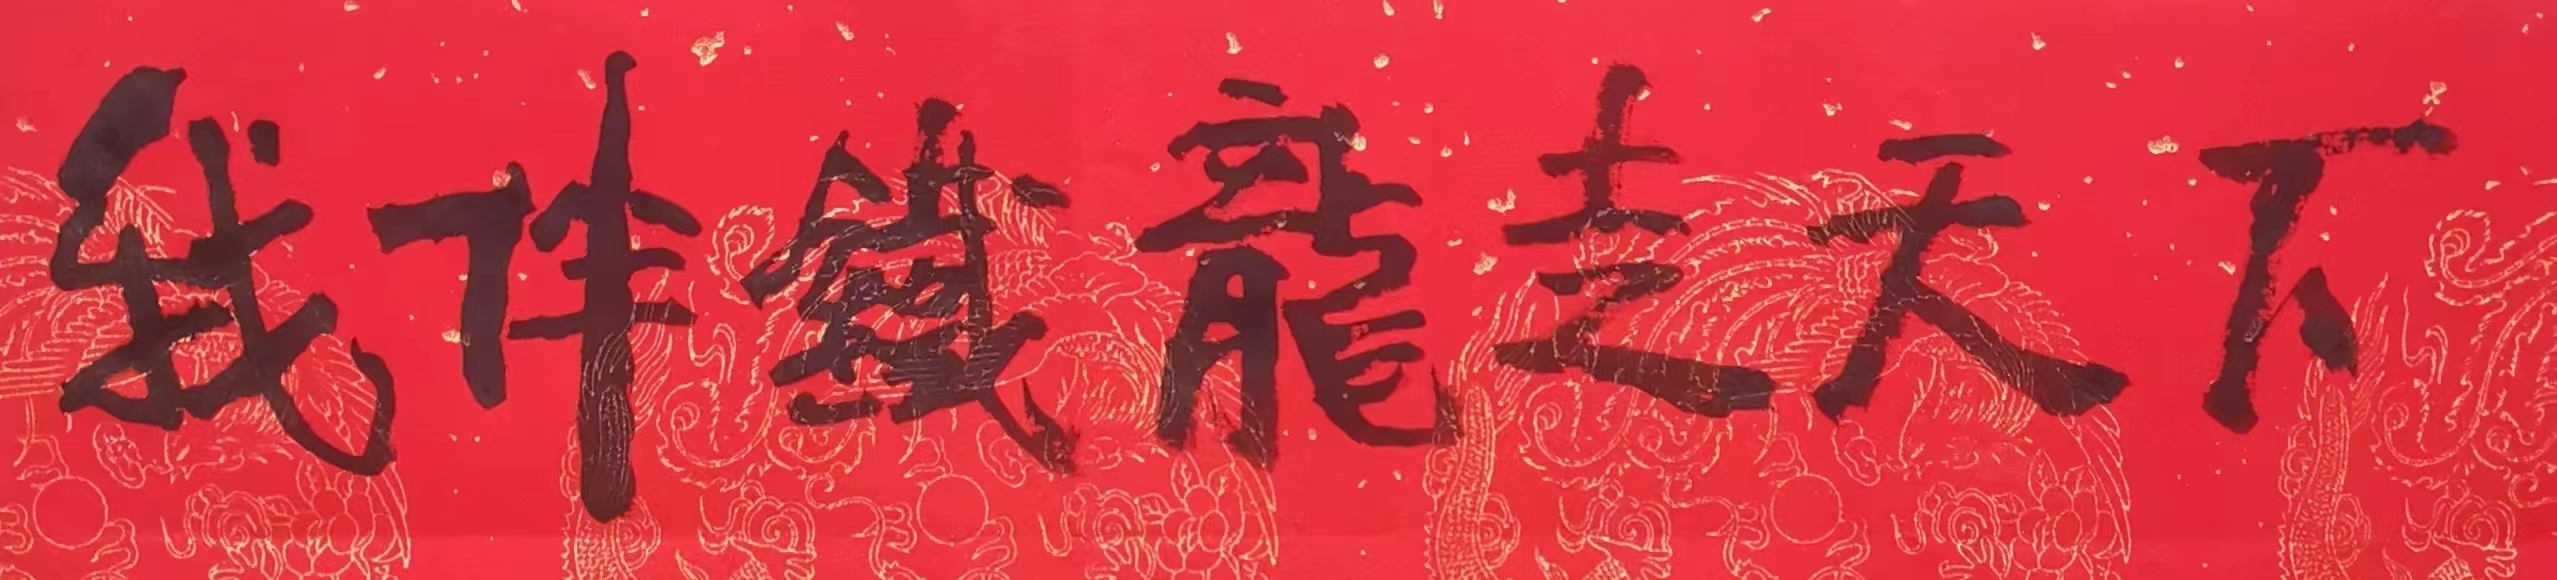 我伴鐵龍走天下